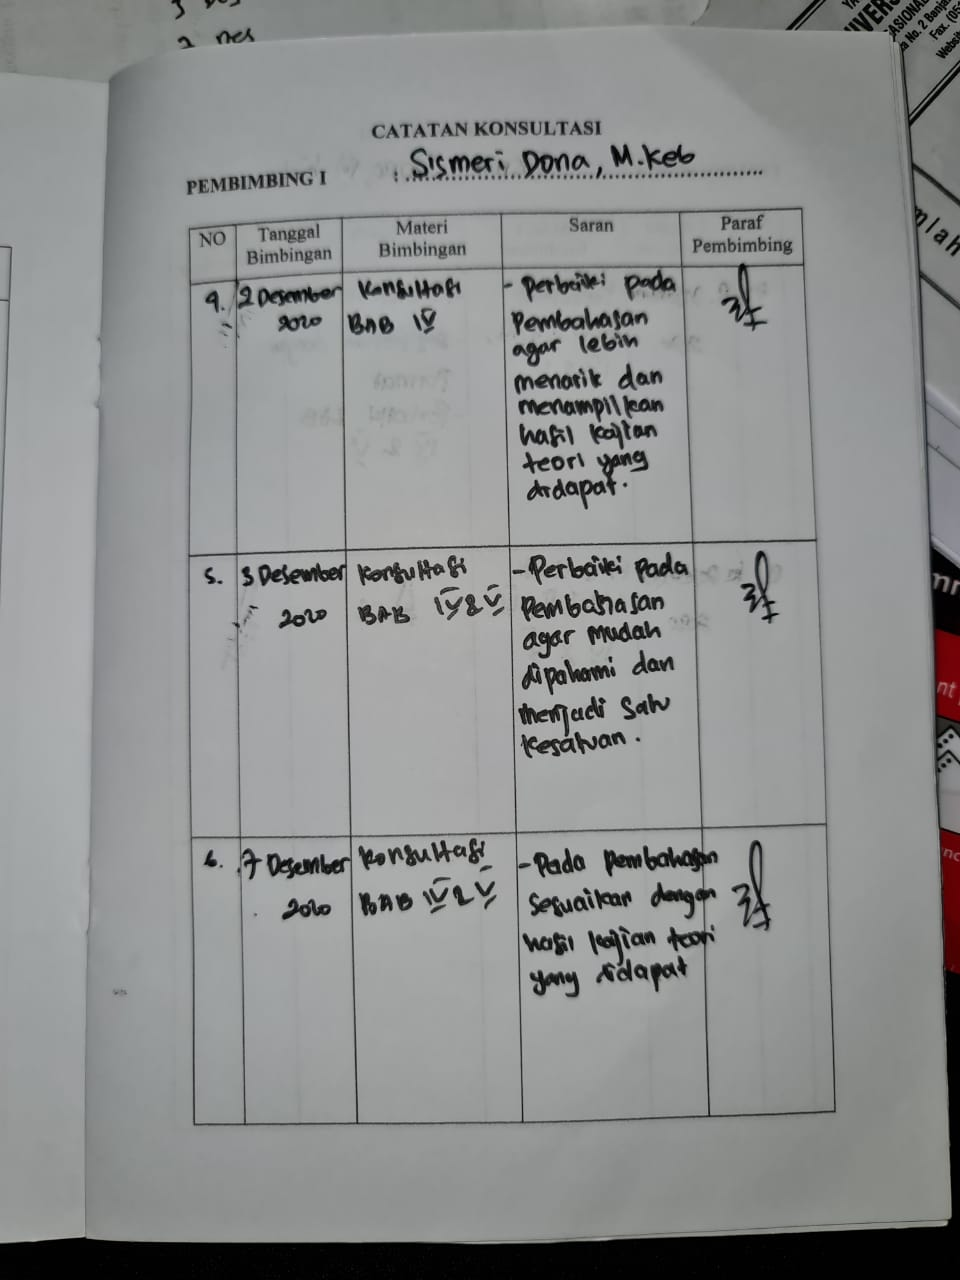 3
2 Des
CATATAN KONSULTASI
PEMBIMBING I : Sismeri Dona, M.Keb
NO
Tanggal
Bimbingan
Materi
Bimbingan
Saran
Paraf
Pembimbing
4.
2 Desember
2020
Konsultasi
BAB IV
- Perbaiki pada
Pembahasan
agar lebih
menarik dan
menampilkan
hasil kajian
teori yang
didapat.
5.
3 Desember
2020
Konsultasi
BAB IV & V
- Perbaiki pada
Pembahasan
agar mudah
dipahami dan
menjadi satu
kesatuan.
6.
7 Desember
2020
Konsultasi
BAB IV & V
- Pada pembahasan
sesuaikan dengan
hasil kajian teori
yang didapat
UNIVERS
No. 2 Banja
Fax. (05
Websit
mlah